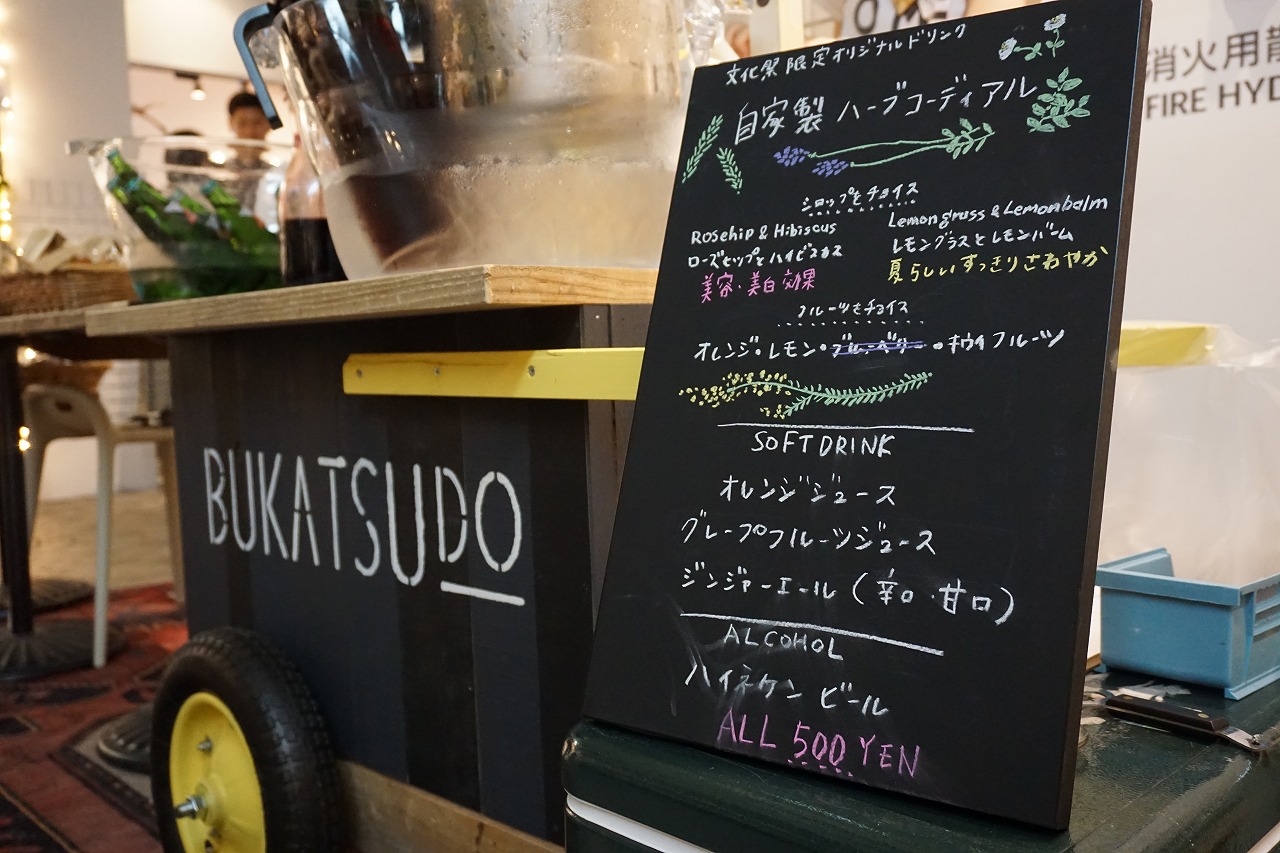 文化祭限定オリジナルドリンク
自家製 ハーブコーディアル
シロップをチョイス
Rosehip & Hibiscus
ローズヒップとハイビスカス
美容・美白効果
Lemongrass & Lemonbalm
レモングラスとレモンバーム
夏らしいすっきりさわやか
フルーツをチョイス
オレンジ・レモン・ブルーベリー・キウイフルーツ
SOFT DRINK
オレンジジュース
グレープフルーツジュース
ジンジャーエール(辛口・甘口)
ALCOHOL
ハイネケン ビール
ALL 500 YEN
BUKATSUDO
消火用散
FIRE HYD